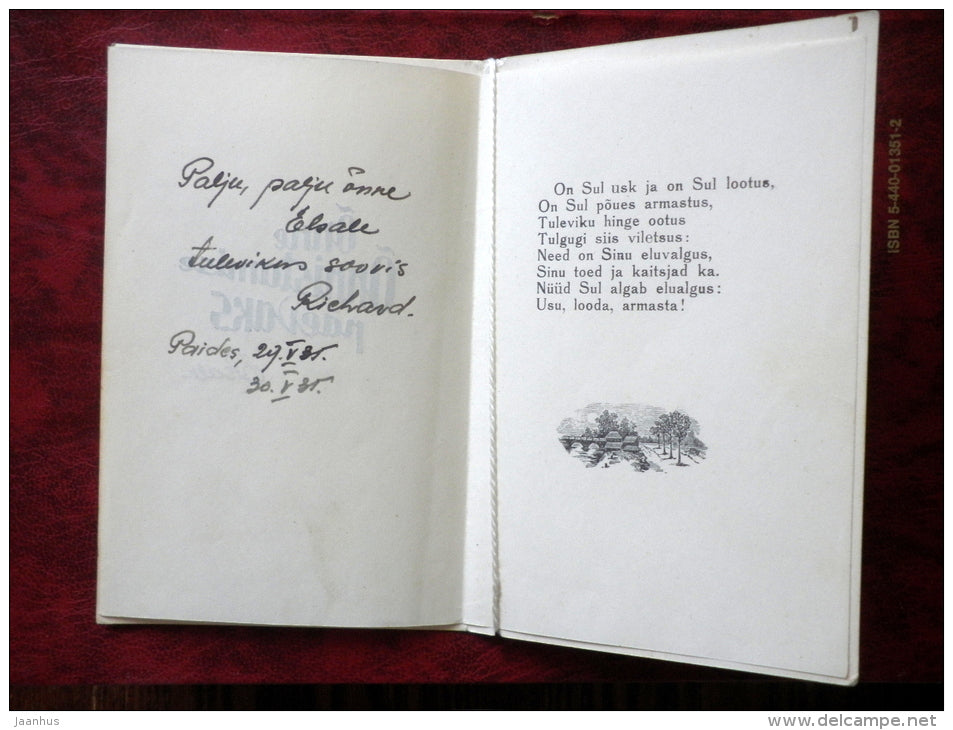 Palju, palju õnne
Elsale
tulevikus soovis
Richard.
Paides, 29.V 35.
30.V 35.
On Sul usk ja on Sul lootus,
On Sul põues armastus,
Tuleviku hinge ootus
Tulgugi siis viletsus:
Need on Sinu eluvalgus,
Sinu toed ja kaitsjad ka.
Nüüd Sul algab elualgus:
Usu, looda, armasta!
ISBN 5-440-01351-2
jaanhus
www.delcampe.net